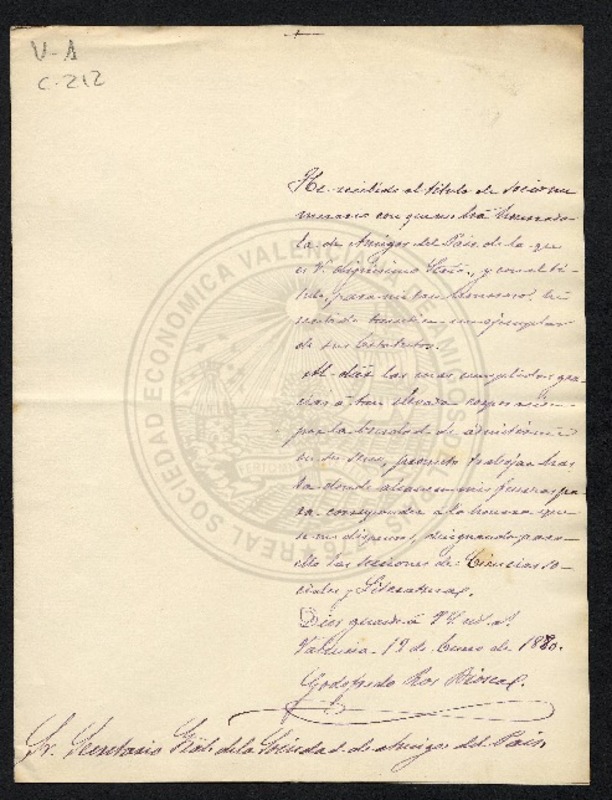 V-A
C-212
He recibido el título de socio nu
merario con que me ha honrado
la de Amigos del Pais de la que
es V. dignísimo Srio., y con el tí
tulo, para mi tan honroso, he
recibido también un ejemplar
de sus Estatutos.
Al dar las mas cumplidas gra
cias á tan elevada corporación
por la bondad de admitirme
en su seno, prometo trabajar has
ta donde alcancen mis fuerzas pa
ra corresponder a la honra que
se me dispensa, designando para
ello las secciones de Ciencias so
ciales y Literatura.
Dios guarde á V. S. m. a.
Valencia 12 de Enero de 1880.
Godofredo Ros Biosca.
Sr. Secretario Gral. de la Sociedad de Amigos del Pais
REAL SOCIEDAD ECONOMICA VALENCIANA DE AMIGOS DEL PAIS 1776